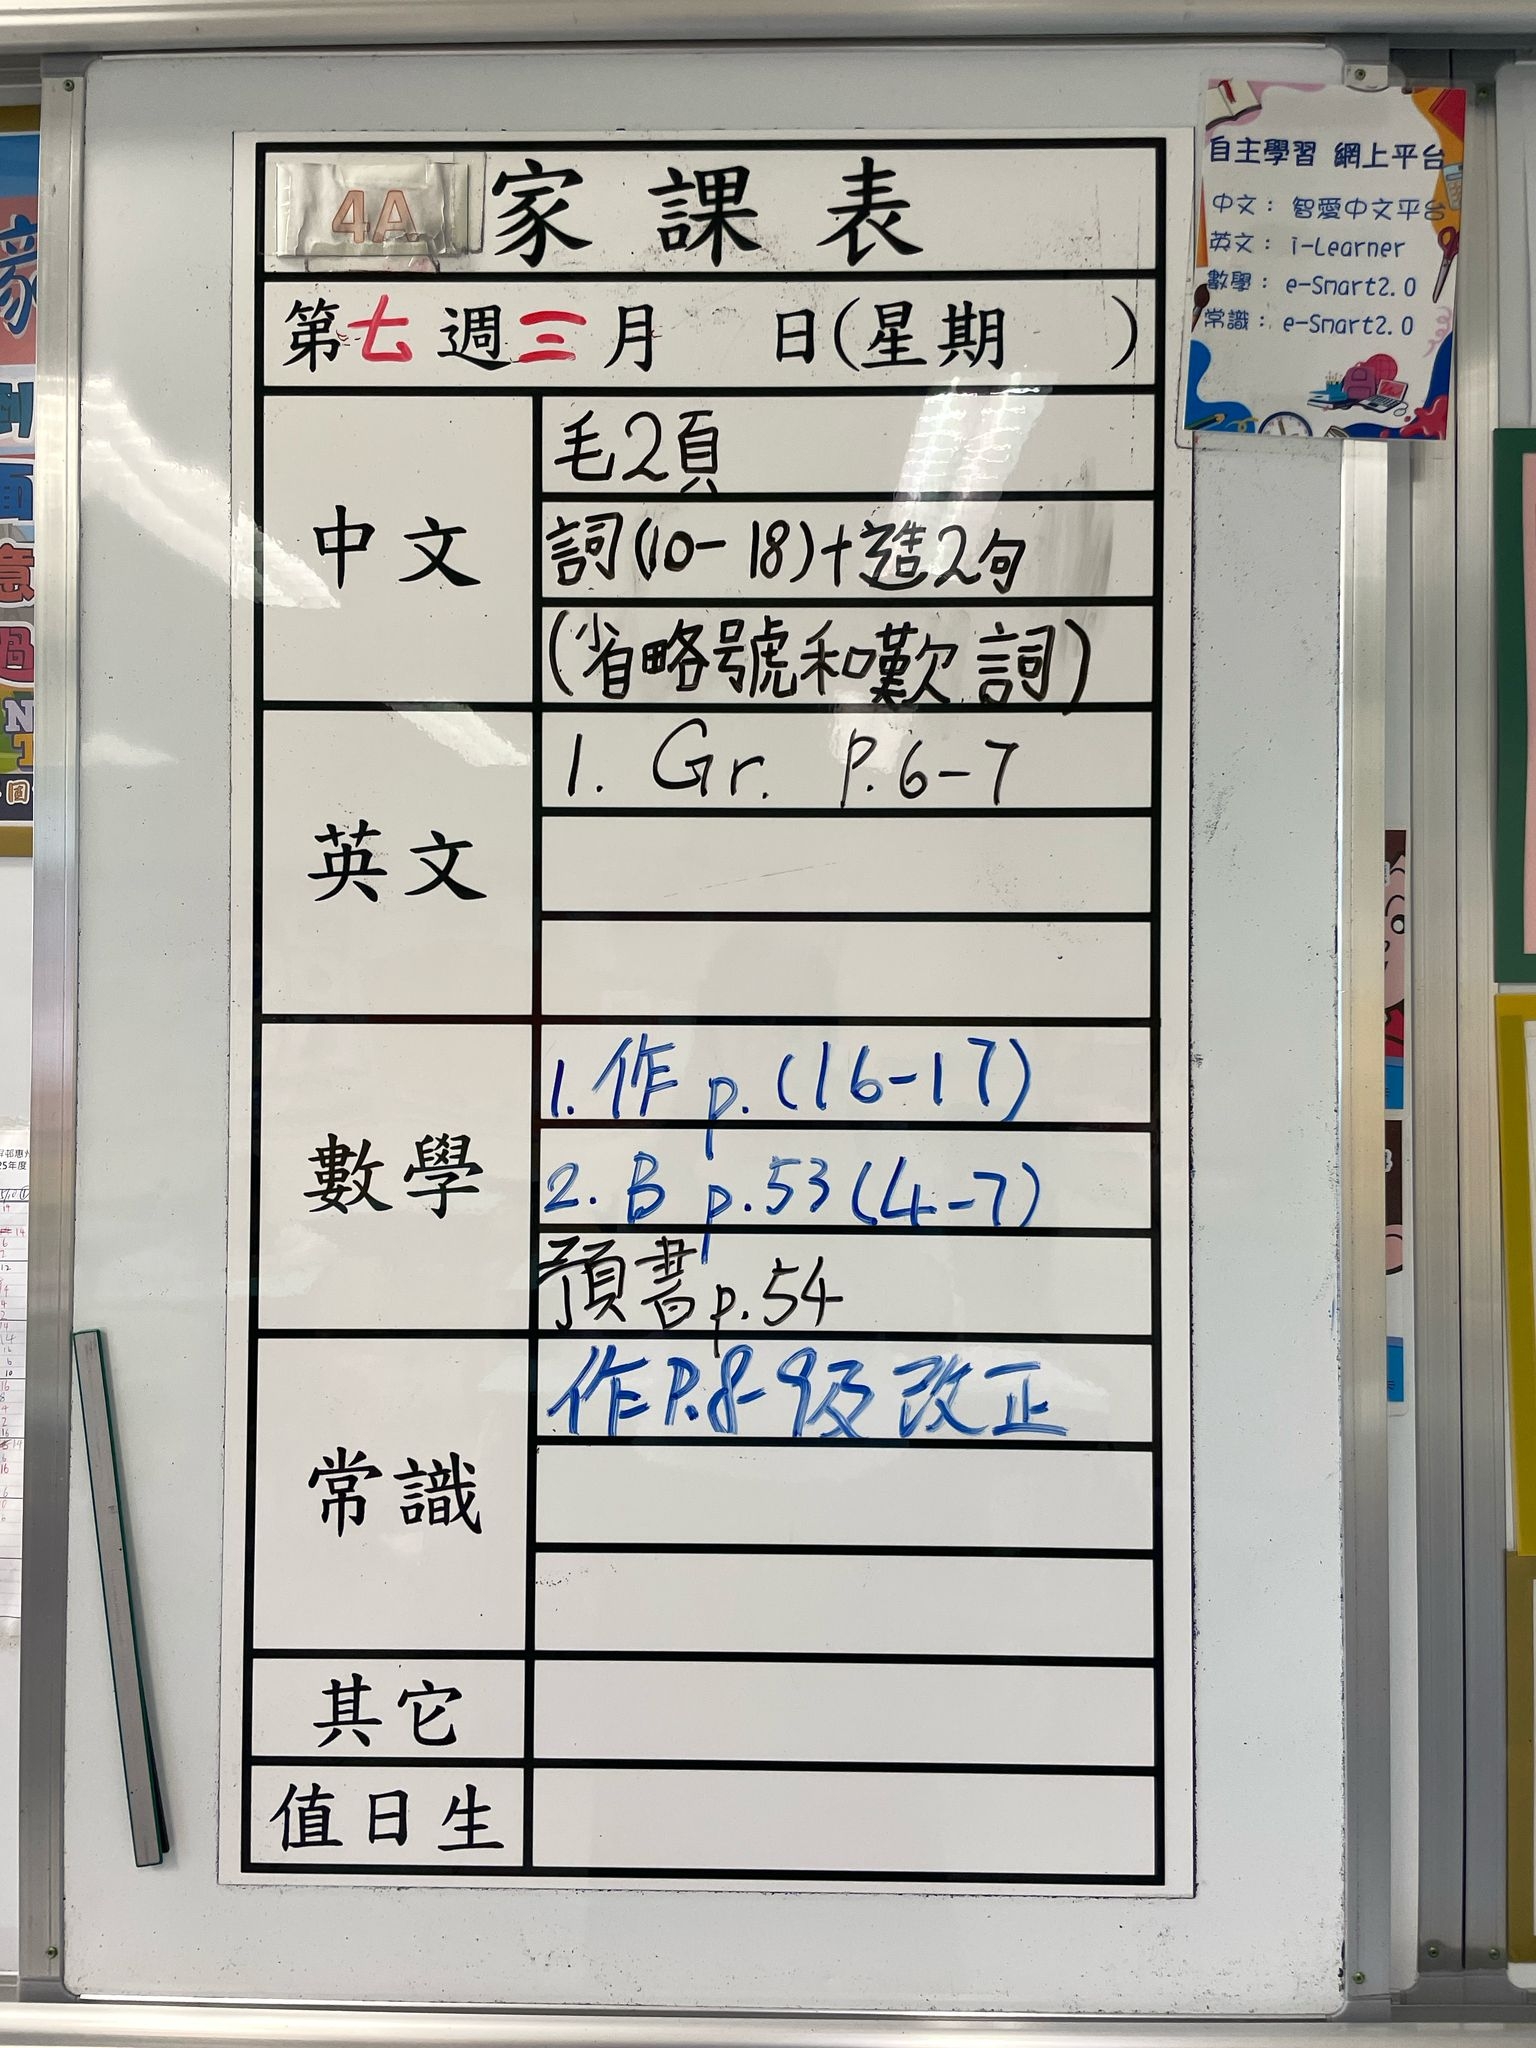 4A 家課表
第七週三月 日(星期 )
中文
毛2頁
詞(10-18)+造2句
(省略號和歎詞)
英文
1. Gr. P.6-7
數學
1. 作 p.(16-17)
2. B p.53(4-7)
預書p.54
常識
作P.8-9及改正
其它
值日生
自主學習 網上平台
中文: 智愛中文平台
英文: i-Learner
數學: e-Smart2.0
常識: e-Smart2.0